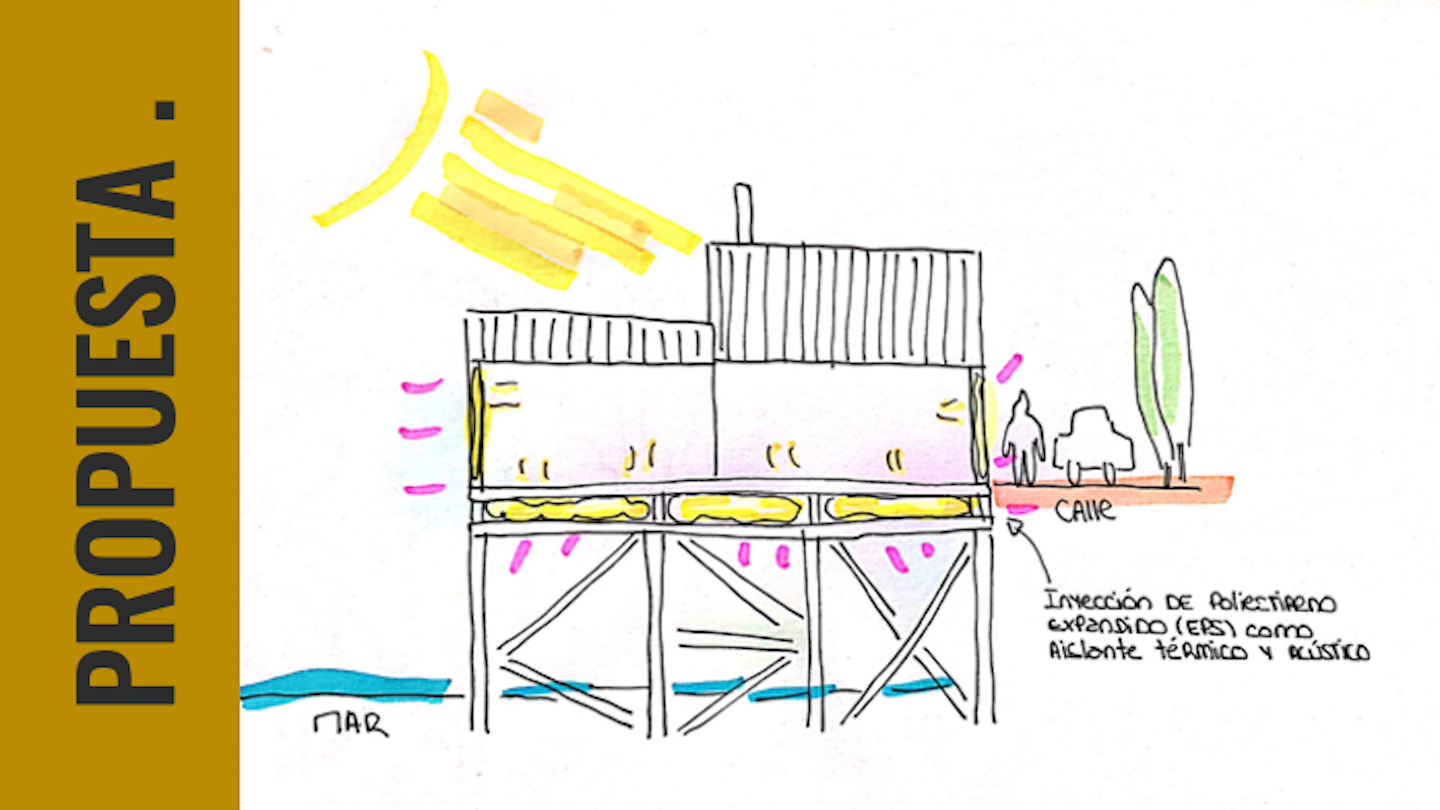 PROPUESTA .
CAlle
Inyección DE Poliestireno
expandido (EPS) como
Aislante térmico y acústico
MAR